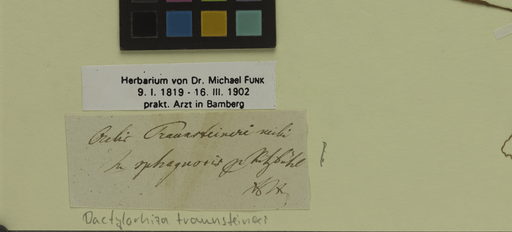 Herbarium von Dr. Michael FUNK
9. I. 1819 - 16. III. 1902
prakt. Arzt in Bamberg
Orchis Traunsteineri
In sphagnosis Kitzbühl
Dactylorhiza traunsteineri